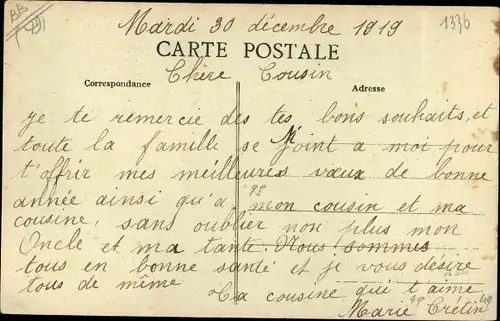 BB
Mardi 30 décembre 1919
1336
CARTE POSTALE
Chère Cousin
Correspondance
Adresse
je te remercie des tes bons souhaits, et
toute la famille se joint a moi pour
t'offrir mes meilleures vœux de bonne
année ainsi qu'a mon cousin et ma
cousine, sans oublier non plus mon
Oncle et ma tante. Nous sommes
tous en bonne santé et je vous désire
tous de même
Ta cousine qui t'aime
Marie Crétin